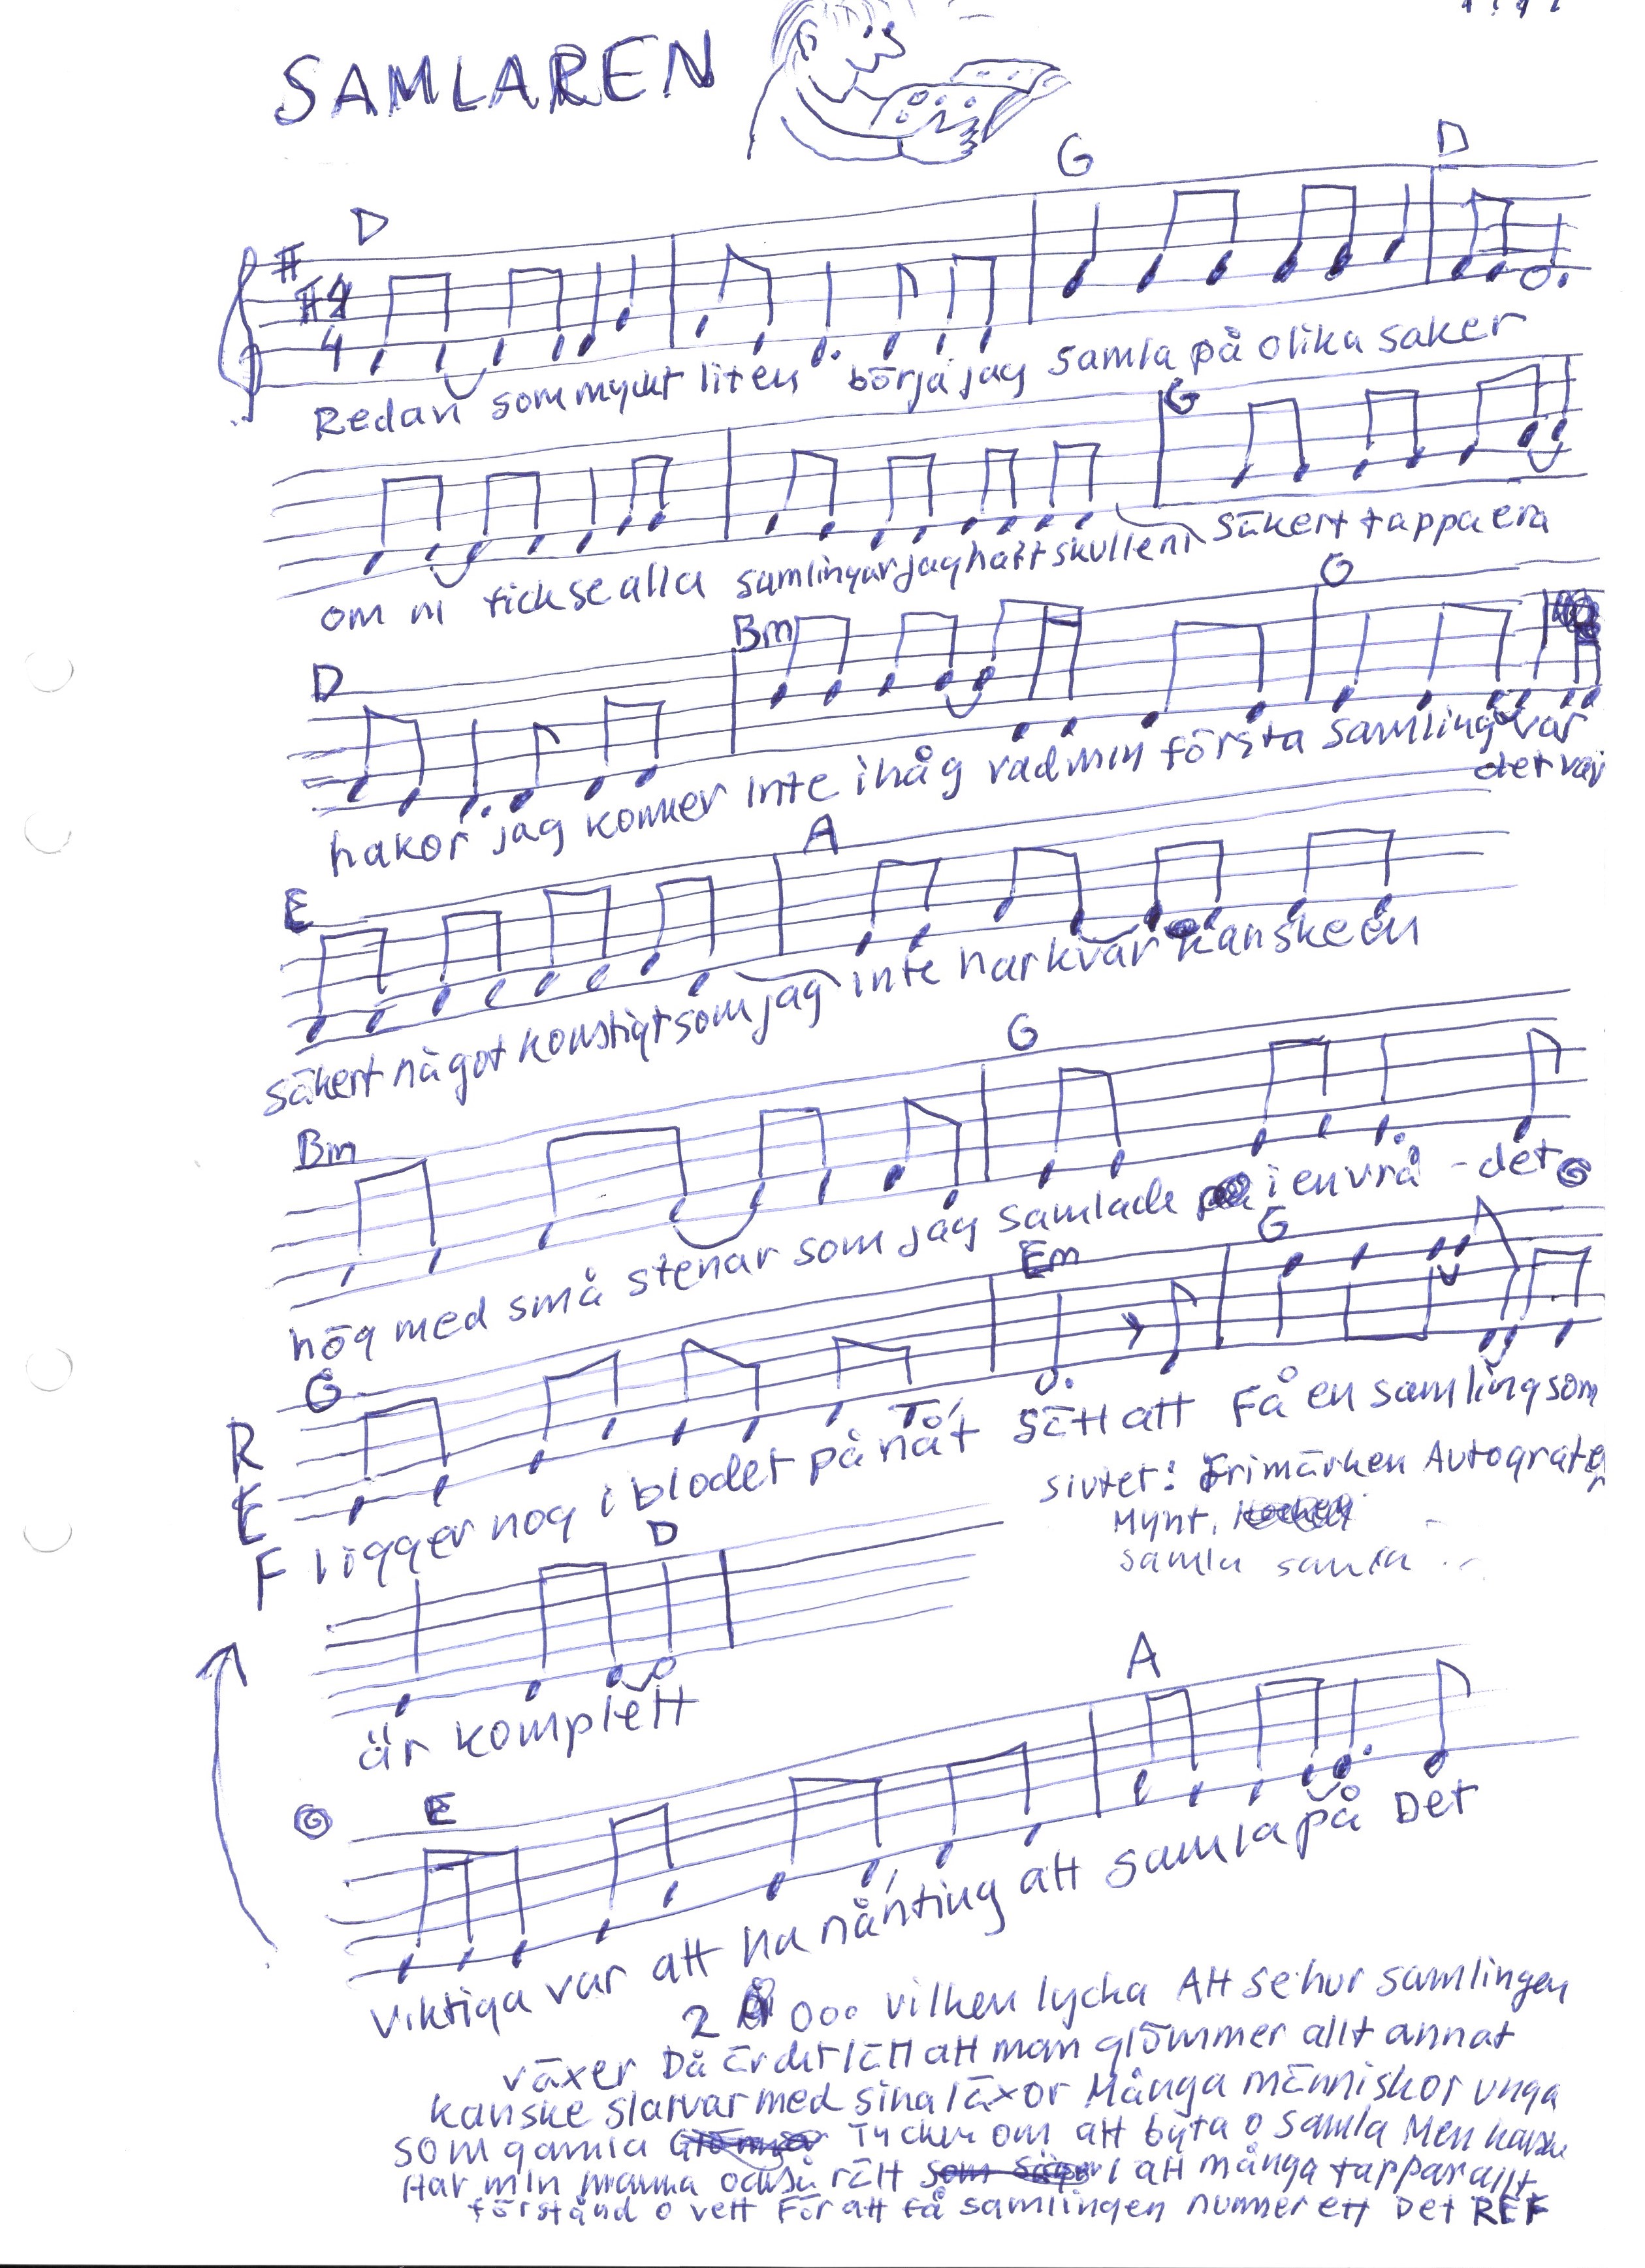 SAMLAREN
G D
D
2
4
Redan som myckt liten börja jag samla på olika saker
G
om ni fick se alla samlingar jag haft skulle ni säkert tappa era
D Bm G
hakor jag kommer inte ihåg vad min första samling var
det var
E A
säkert något konstigt som jag inte har kvar kanske en
Bm G
hög med små stenar som jag samlade i en vrå - det
G Em G
REF ligger nog i blodet på nåt sätt att få en samling som
slutet: Frimärken Autografer
Mynt,
samla samla ...
D
är komplett
E A
viktiga var att ha nånting att samla på Det
2 Ooo vilken lycka Att se hur samlingen
växer Då är det lätt att man glömmer allt annat
kanske slarvar med sina läxor Många människor unga
som gamla Tycker om att byta o samla Men kanske
Har min mamma också rätt i att många tappar allt
förstånd o vett För att få samlingen nummer ett Det REF